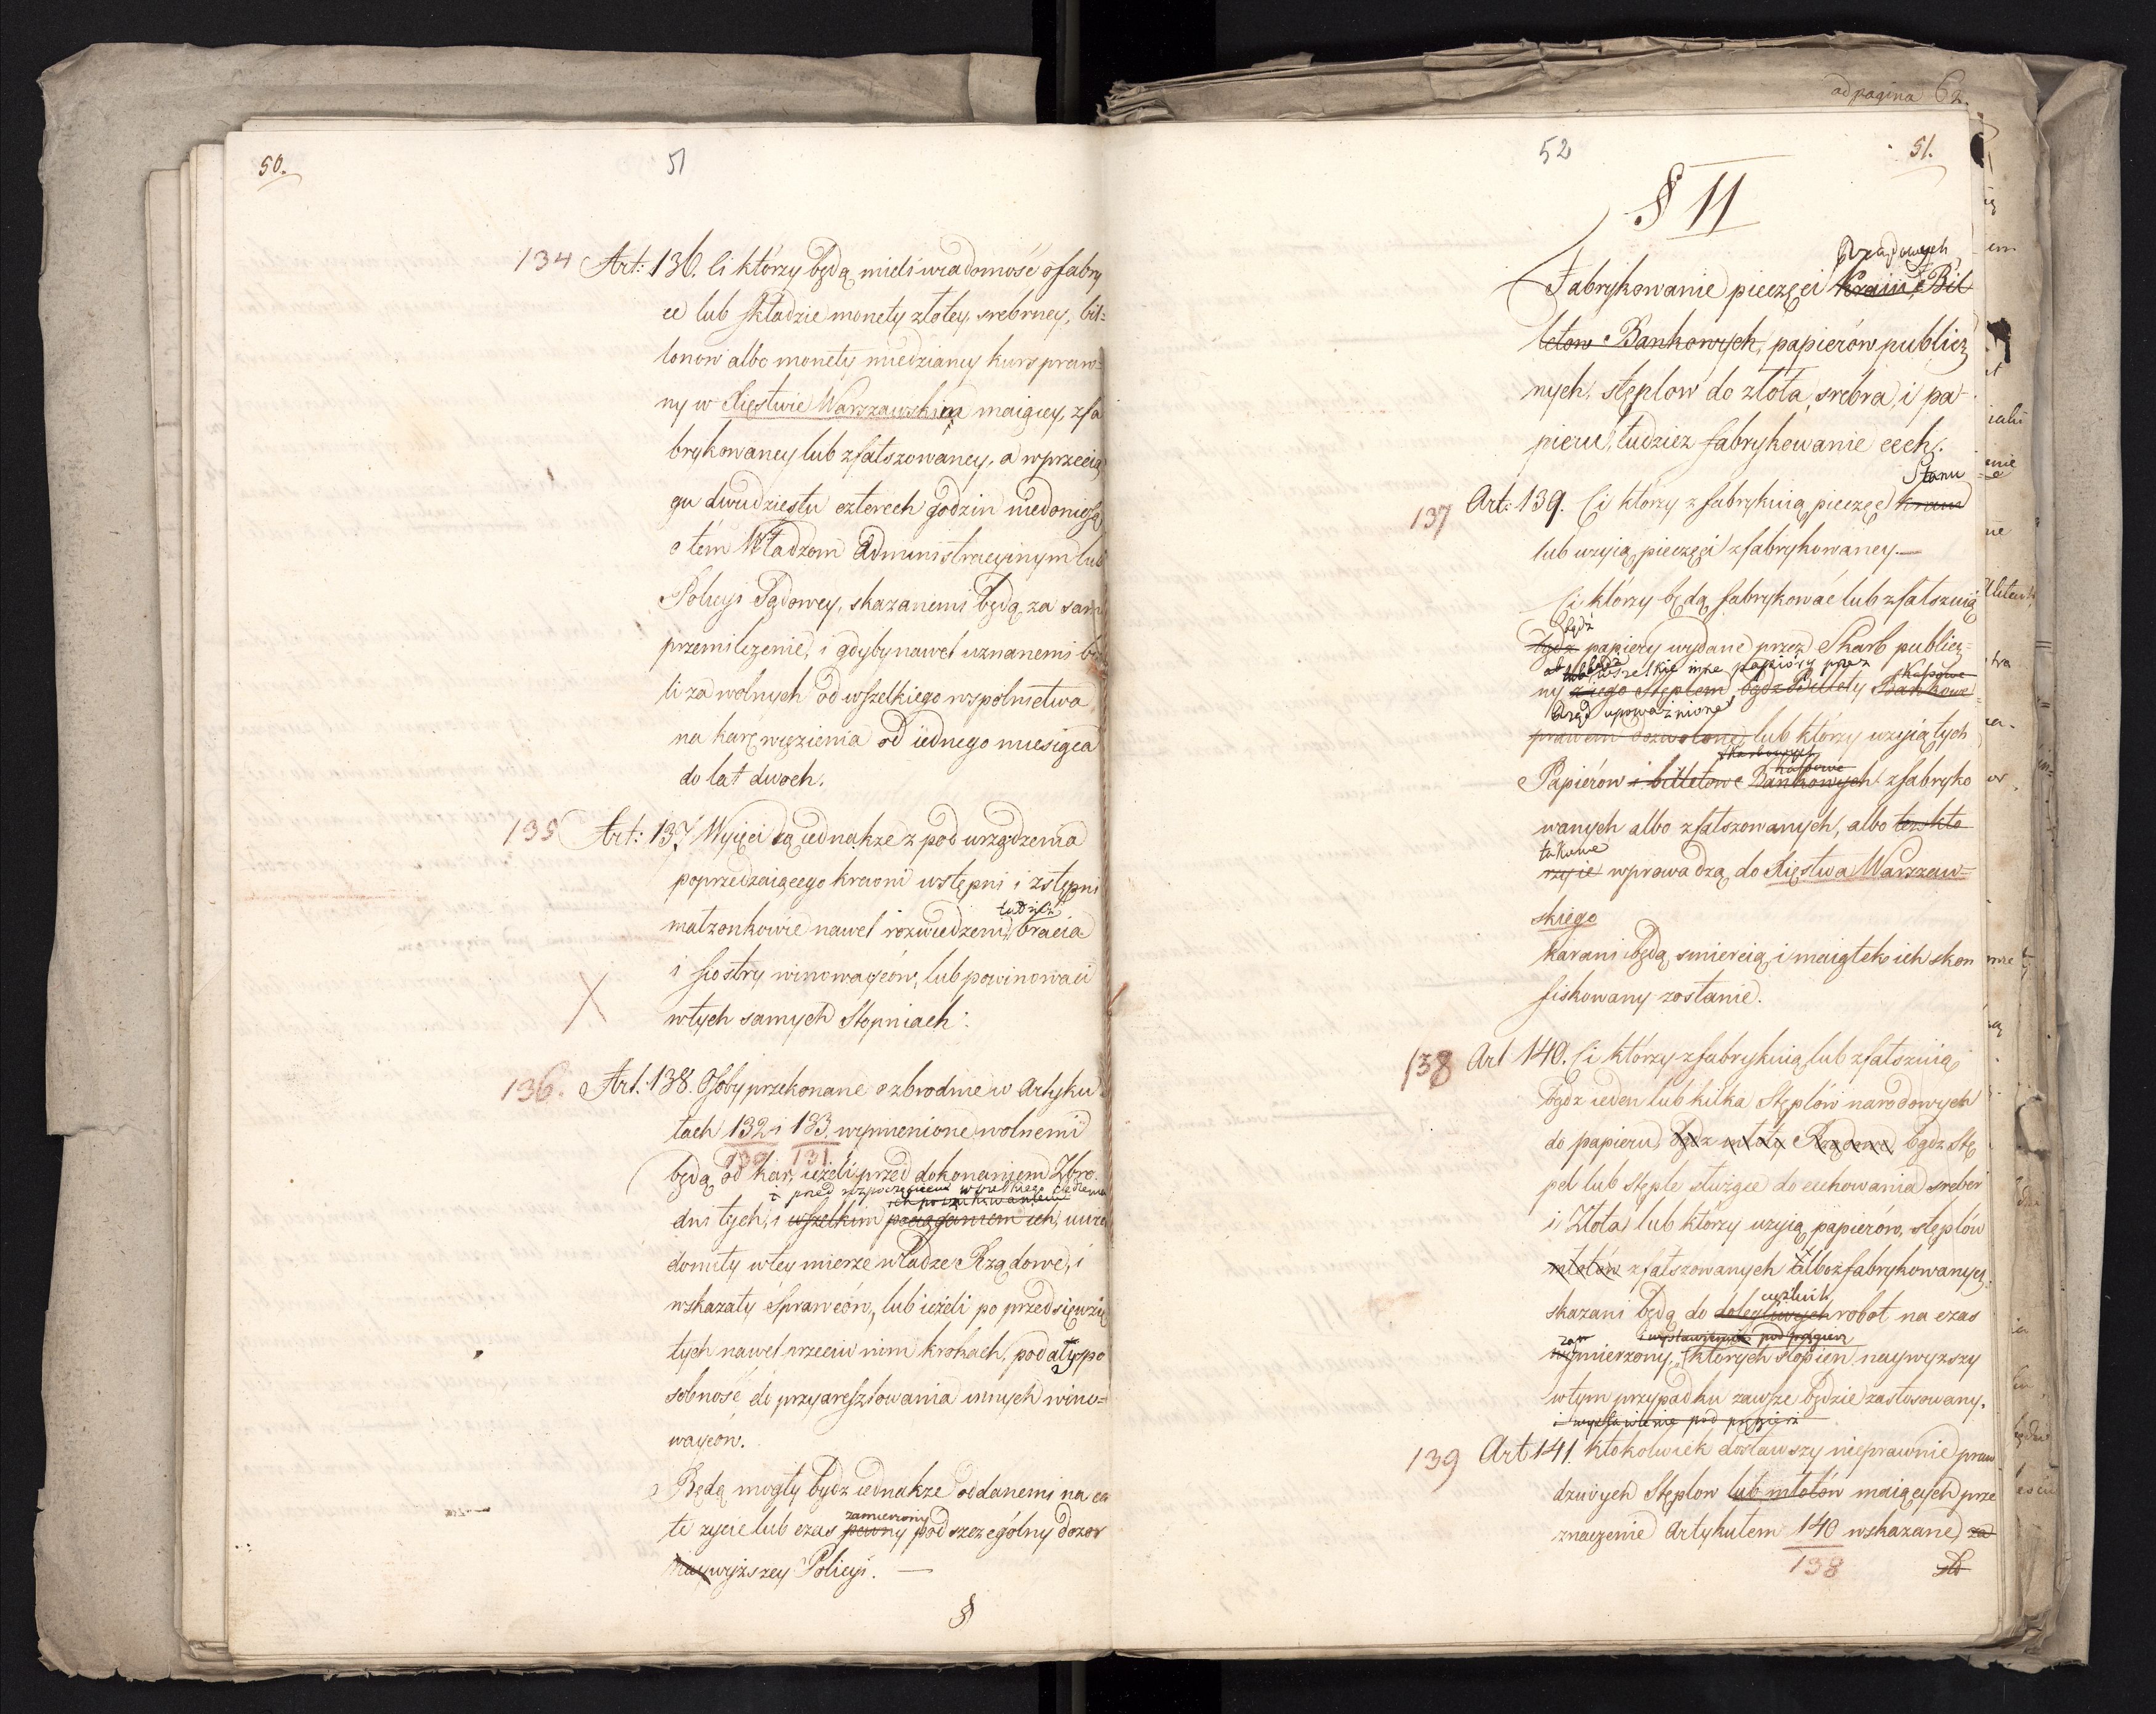 50.
51
134 Art: 136. Ci którzy będą mieli wiadomość o fabry
ce lub składzie monety złotey, srebrney, bil=
lonow albo monety miedzianey kurs praw=
ny w Xięstwie Warszawskim maiącey, zfa
brykowaney lub zfałszowaney, a wprzecią
gu dwudziestu czterech godzin niedoniosą
o tém Władzom Administracyinym lub
Policyi Sądowey, skazanemi będą za samo
przemilczenie, i gdyby nawet uznanemi by
li za wolnych od wszelkiego wspólnictwa
na karę więzienia od iednego miesiąca
do lat dwoch.
135 Art: 137. Wyięci są iednakże z pod urządzenia
poprzedzaiącego krewni wstępni i zstępni
tudzież
małżonkowie nawet rozwiedzeni, bracia
i siostry winowayców, lub powinowaci
wtych samych stopniach.
136. Art. 138. Osoby przekonane o zbrodnie w Artyku
łach 132 i 133. wymienione, wolnemi
130 131
będą od kar, ieżeli przed dokonaniem Zbro
i przed rozpoczęciem wszelkiego śledzenia
ich poszukiwaniem
dni tych, i wszelkim pociąganiem ich, uwia
domiły wtey mierze władze Rządowe, i
wskazały Sprawców, lub ieżeli po przedsięwzię
tych nawet przeciw nim krokach, podały spo
sobność do przyaresztowania innych wino=
wayców.
Będą mogły bydz iednakze oddanemi na ca
zamierzony
łe zycie lub czas pewny pod szczególny dozor
naywyższey Policyi. —
§
ad pagina 62.
52
51.
§ II
Rządowych
Fabrykowanie pieczęci Kraiu, Bil
letow Bankowych, papierów publicz
nych, stęplow do złota, srebra, i pa-
pieru, tudziez fabrykowanie cech.
Stanu
137 Art: 139. Ci którzy zfabrykuią pieczęć kraiu
lub uzyią pieczęci zfabrykowaney.—
Ci którzy będą fabrykować lub zfałszuią
bądź
bydz papiery wydane przez Skarb publicz=
wszelkie inne papiéry przez Kassowe
ny z iego Stęplem, bądz Billety Bankowe
Rząd upoważnione
prawem dozwolone, lub którzy uzyią tych
Skarbowych
kassowe
Papierów i billetow Bankowych zfabryko
wanych albo zfałszowanych, albo też kto
takowe
rzy ie wprowadzą do Xięstwa Warszaw=
skiego
karani będą smiercią, i maiątek ich skon
fiskowany zostanie.
138 Art 140. Ci którzy zfabrykuią, lub zfałszuią
bądz ieden lub kilka Stęplów narodowych
do papieru, bądz młoty Rządowe, bądz Stę
pel lub Stęple służące do cechowania sreber
i Złota lub którzy uzyią papierów, stęplów
młotów zfałszowanych albo zfabrykowanych
ciężkich
skazani będą do dolegliwych robot na czas
za i wystawienie pod pręgierz
wymierzony, których stopień naywyzszy
wtym przypadku zawsze będzie zastosowany.
i wystawienie pod pręgierz
139 Art 141. Ktokolwiek dostawszy nieprawnie praw
dziwych Stęplow lub młotów maiących prze
znaczenie Artykułem 140 wskazane za
138